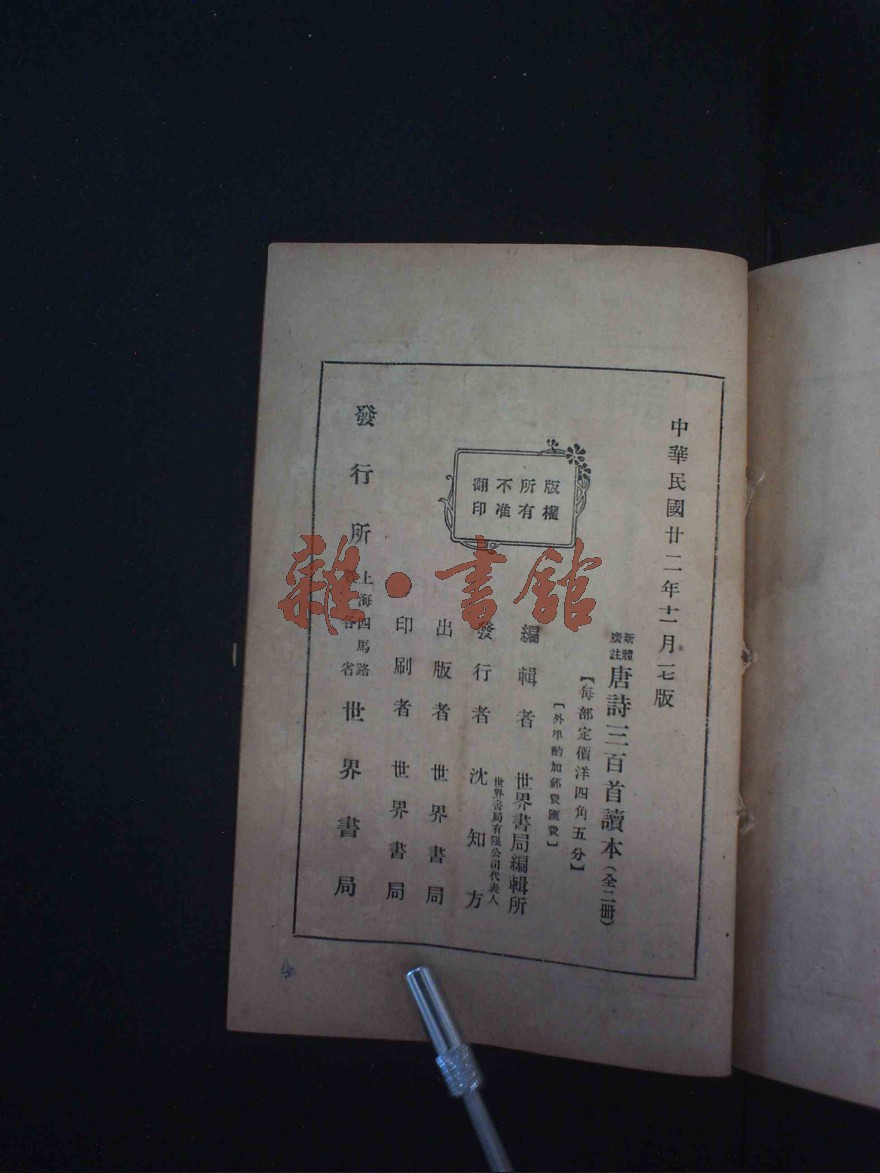 中華民國廿二年十一月一七版
新體廣註唐詩三百首讀本(全二冊)
【每部定價洋四角五分】
【外埠酌加郵費匯費】
版權所有不准翻印
編輯者 世界書局編輯所
世界書局有限公司代表人
發行者 沈知方
出版者 世界書局
印刷者 世界書局
發行所 上海四馬路 各省 世界書局
雜·書館